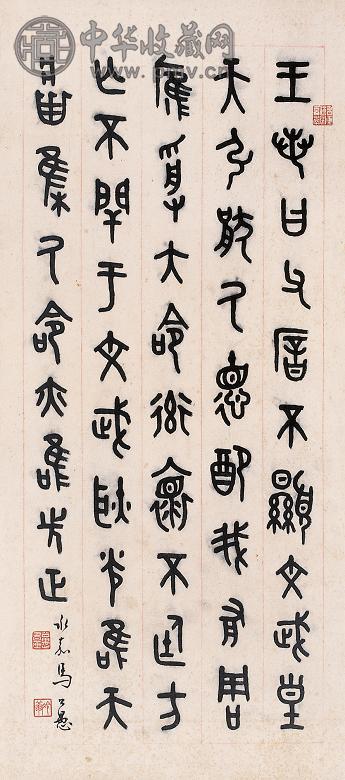 中华收藏网
王若曰父厝不顯文武皇
天弘厭厥德配我有周
膺受大命率懷不廷方
亡不閈于文武耿光唯天
將集厥命亦唯先正
永嘉馬公愚